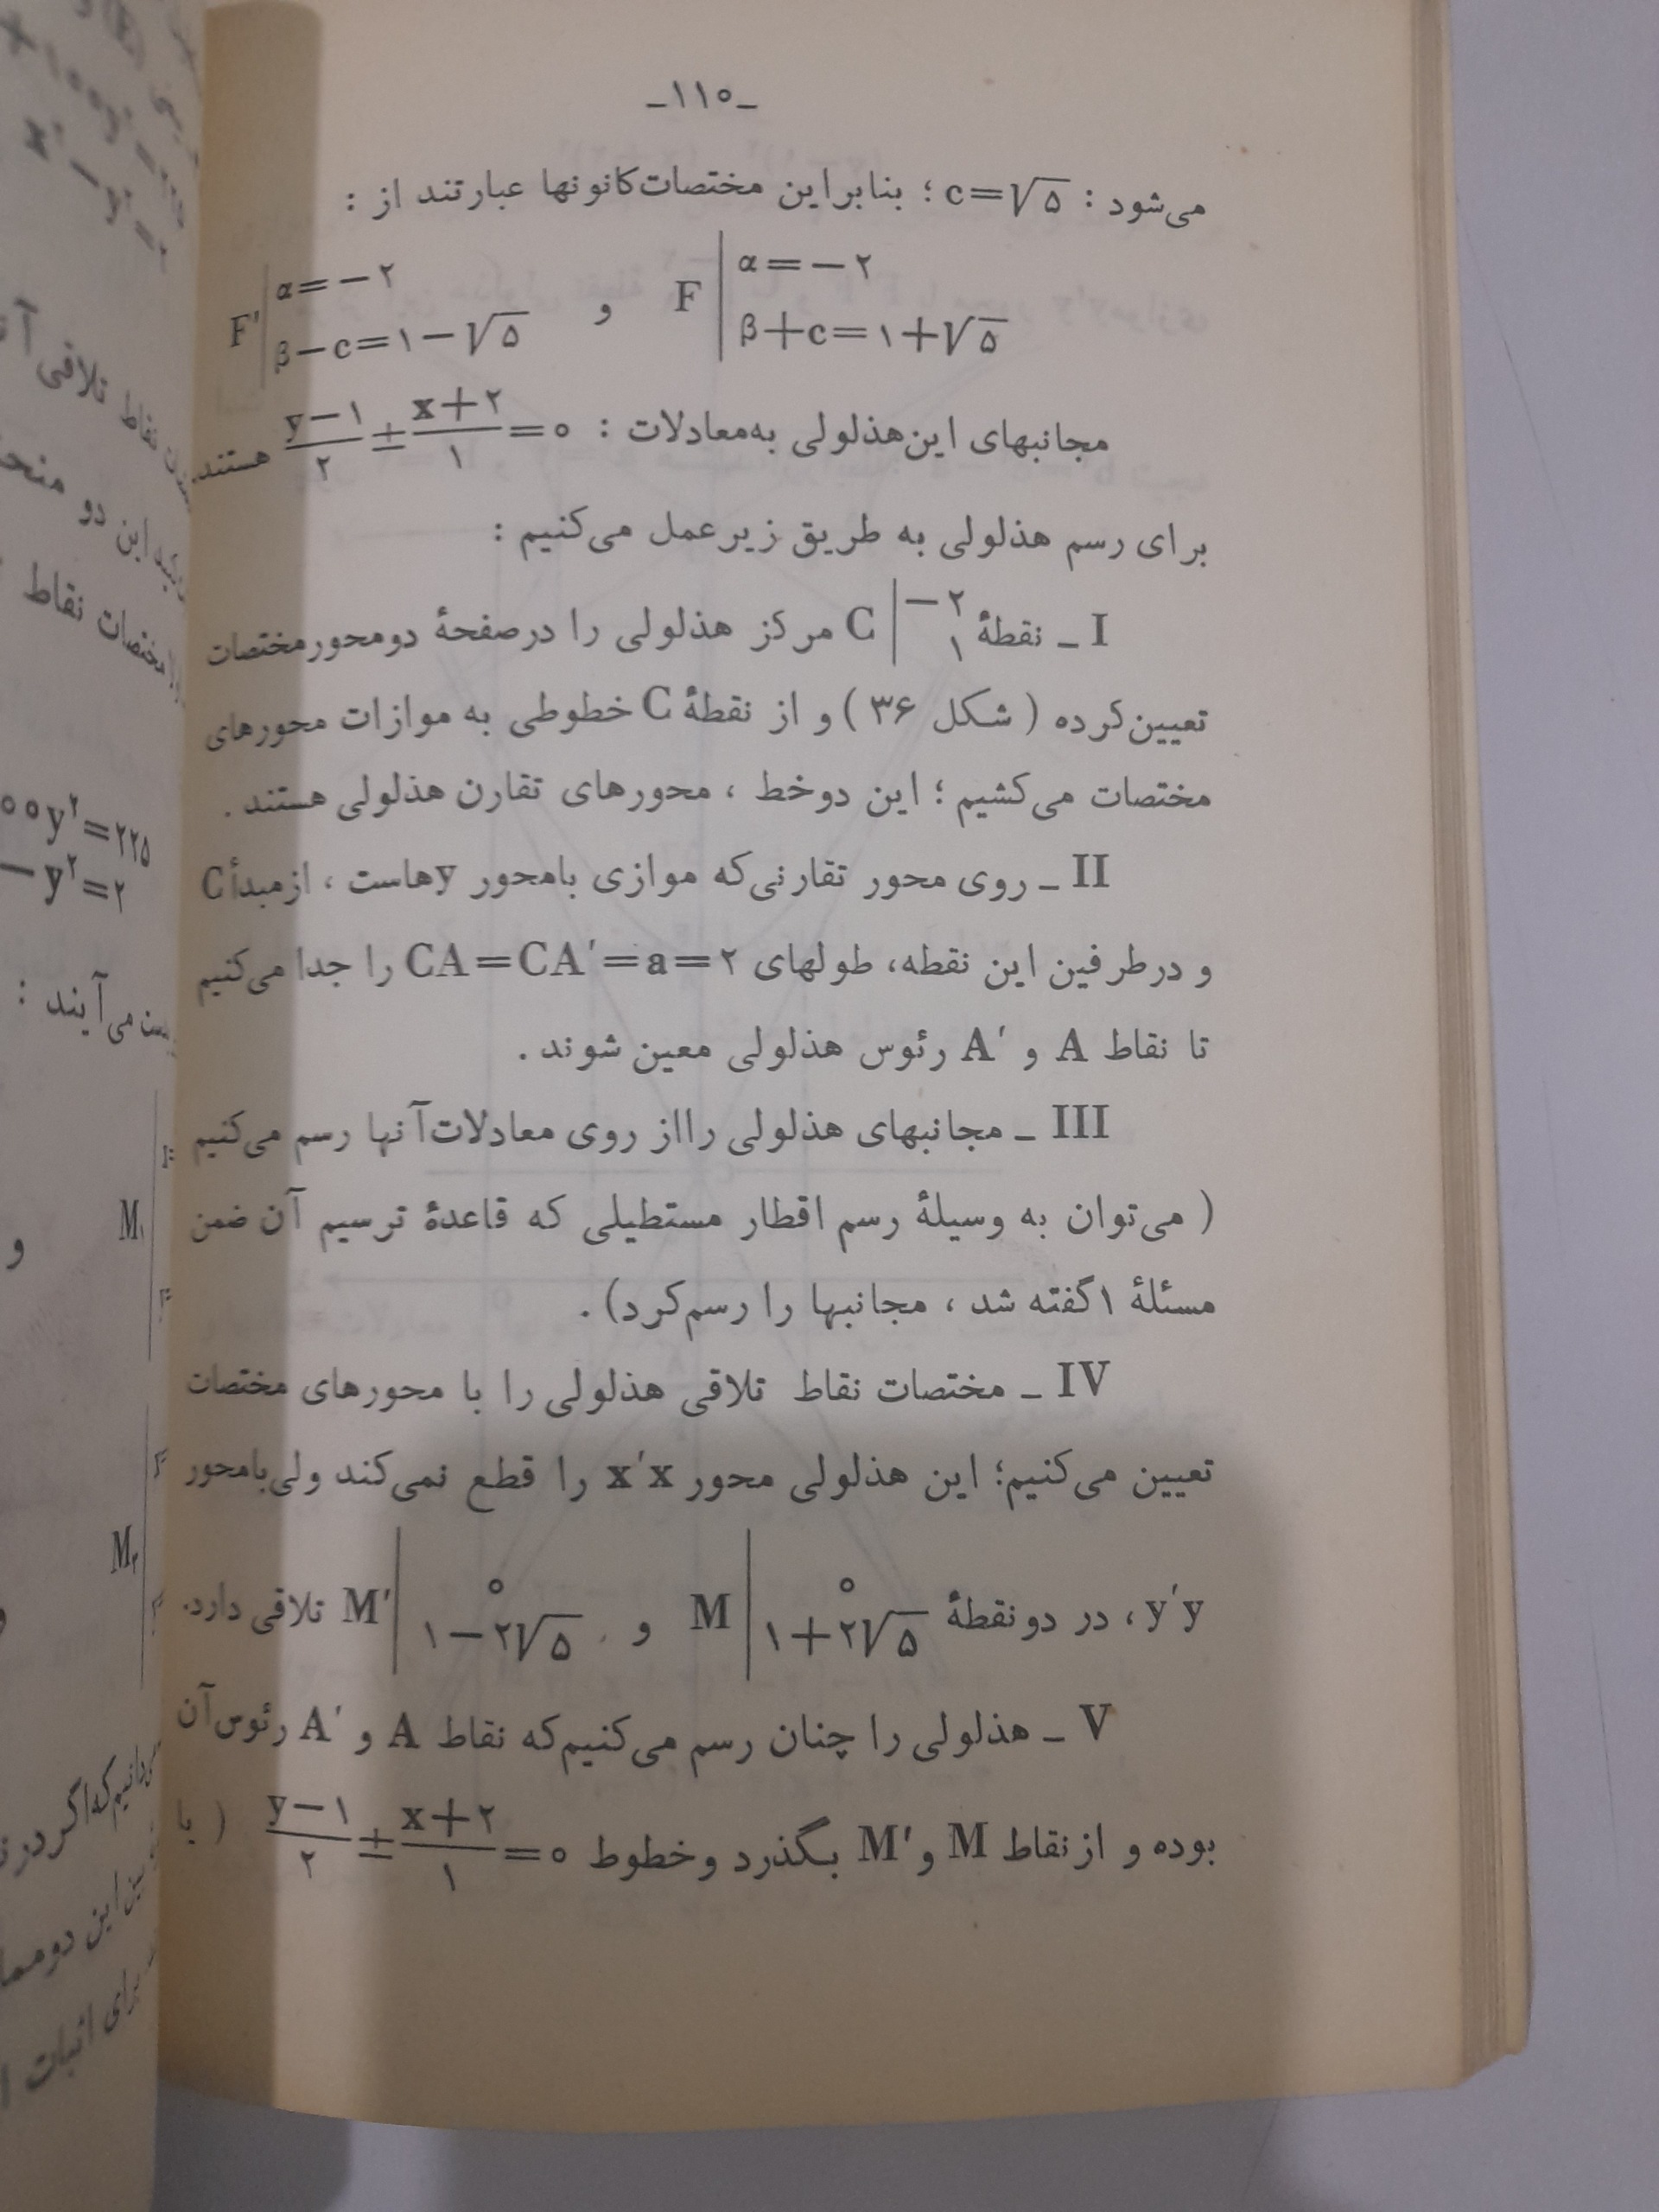 -۱۱۰-
می‌شود : c=√۵ ؛ بنابراین مختصات کانونها عبارتند از :
F | α=-۲ , β+c=۱+√۵ و F' | α=-۲ , β-c=۱-√۵
مجانبهای این هذلولی به معادلات : (y-۱)/۲ ± (x+۲)/۱ =۰ هستند.
برای رسم هذلولی به طریق زیر عمل می‌کنیم :
I - نقطهٔ C | -۲ , ۱ مرکز هذلولی را در صفحهٔ دو محور مختصات
تعیین کرده ( شکل ۳۶ ) و از نقطهٔ C خطوطی به موازات محورهای
مختصات می‌کشیم ؛ این دو خط ، محورهای تقارن هذلولی هستند .
II - روی محور تقارنی که موازی با محور yهاست ، از مبدأ C
و در طرفین این نقطه، طولهای CA=CA'=a=۲ را جدا می‌کنیم
تا نقاط A و A' رئوس هذلولی معین شوند .
III - مجانبهای هذلولی را از روی معادلات آنها رسم می‌کنیم
( می‌توان به وسیلهٔ رسم اقطار مستطیلی که قاعدهٔ ترسیم آن ضمن
مسئلهٔ ۱ گفته شد ، مجانبها را رسم کرد) .
IV - مختصات نقاط تلاقی هذلولی را با محورهای مختصات
تعیین می‌کنیم؛ این هذلولی محور x'x را قطع نمی‌کند ولی با محور
y'y ، در دو نقطهٔ M | ۰ , ۱+۲√۵ و M' | ۰ , ۱-۲√۵ تلاقی دارد.
V - هذلولی را چنان رسم می‌کنیم که نقاط A و A' رئوس آن
بوده و از نقاط M و M' بگذرد و خطوط (y-۱)/۲ ± (x+۲)/۱ =۰ ( با
نقاط تلاقی
این دو
مختصات نقاط
y²=۲۲۵
-y²=۲
می‌آیند :
M₁
و
M₂
این دو
برای اثبات